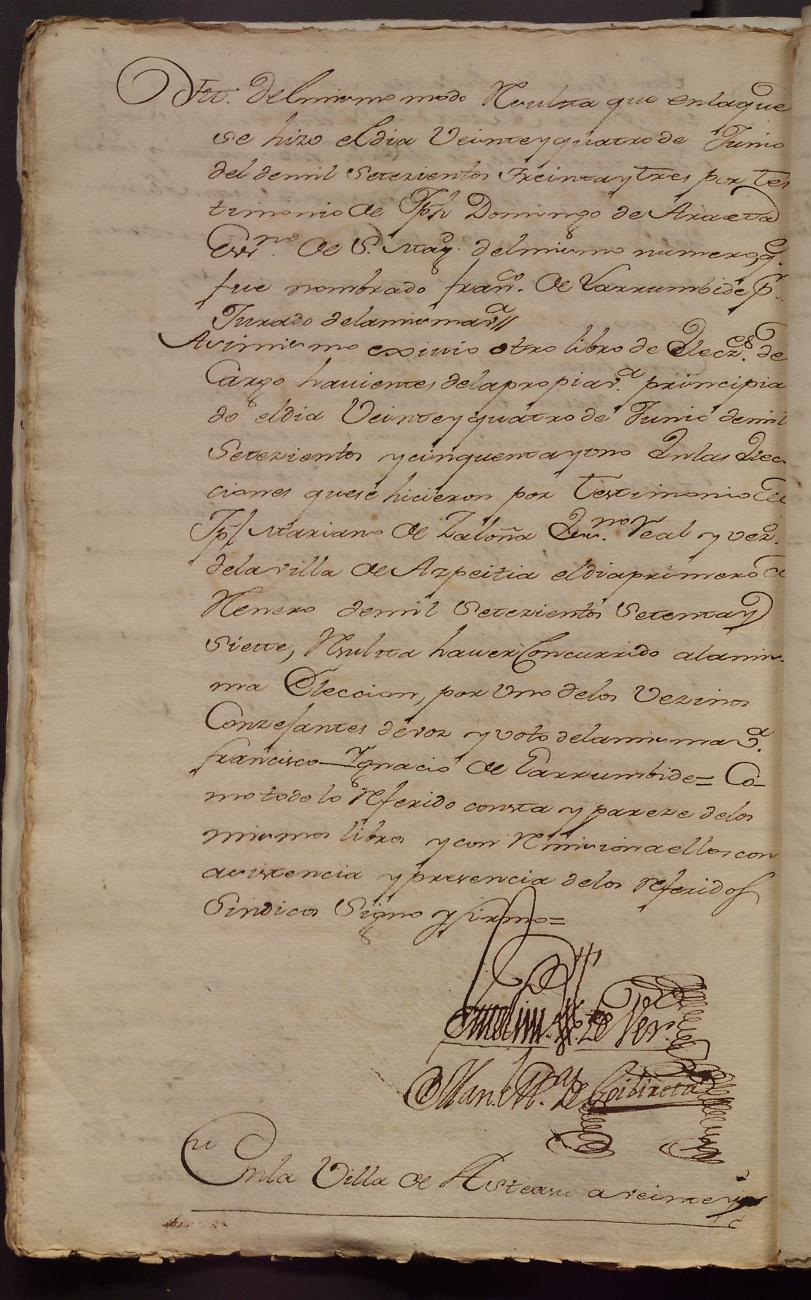 Itt. del mismo modo Resulta que en la que
se hizo el dia Veinte y quatro de Junio
del de mil Setezientos Treinta y tres por tes
timonio de Jph Domingo de
Essno. de S. Mag. del mismo numero q.
fue nombrado Franco. de Larrumbide pr.
Jurado de la misma va//
Asimismo exivio otro libro de Eleczes. de
Cargo havientes de la propia va. principia
do el dia Veinte y quatro de Junio de mil
Setezientos y cinquenta y uno En las Elec
ciones que se hicieron por testimonio de
Jph Mariano de Zaloña Essno. Real y vezo.
de la villa de Azpeitia el dia primero de
Henero de mil Setezientos Setenta y
siette, Resulta haver Concurrido a la mis-
ma Eleccion, por Uno de los Vezinos
Conzejantes de voz y voto de la misma va.
Francisco Ignacio de Larrumbide= Co-
mo todo lo Referido consta y pareze de los
mismos libros y con Remision a ellos con
asistencia y presencia de los Referidos
Sindicos Signo y firmo=
Manl. Ma. de Goibideta
En la Villa de Asteasu a veinte y